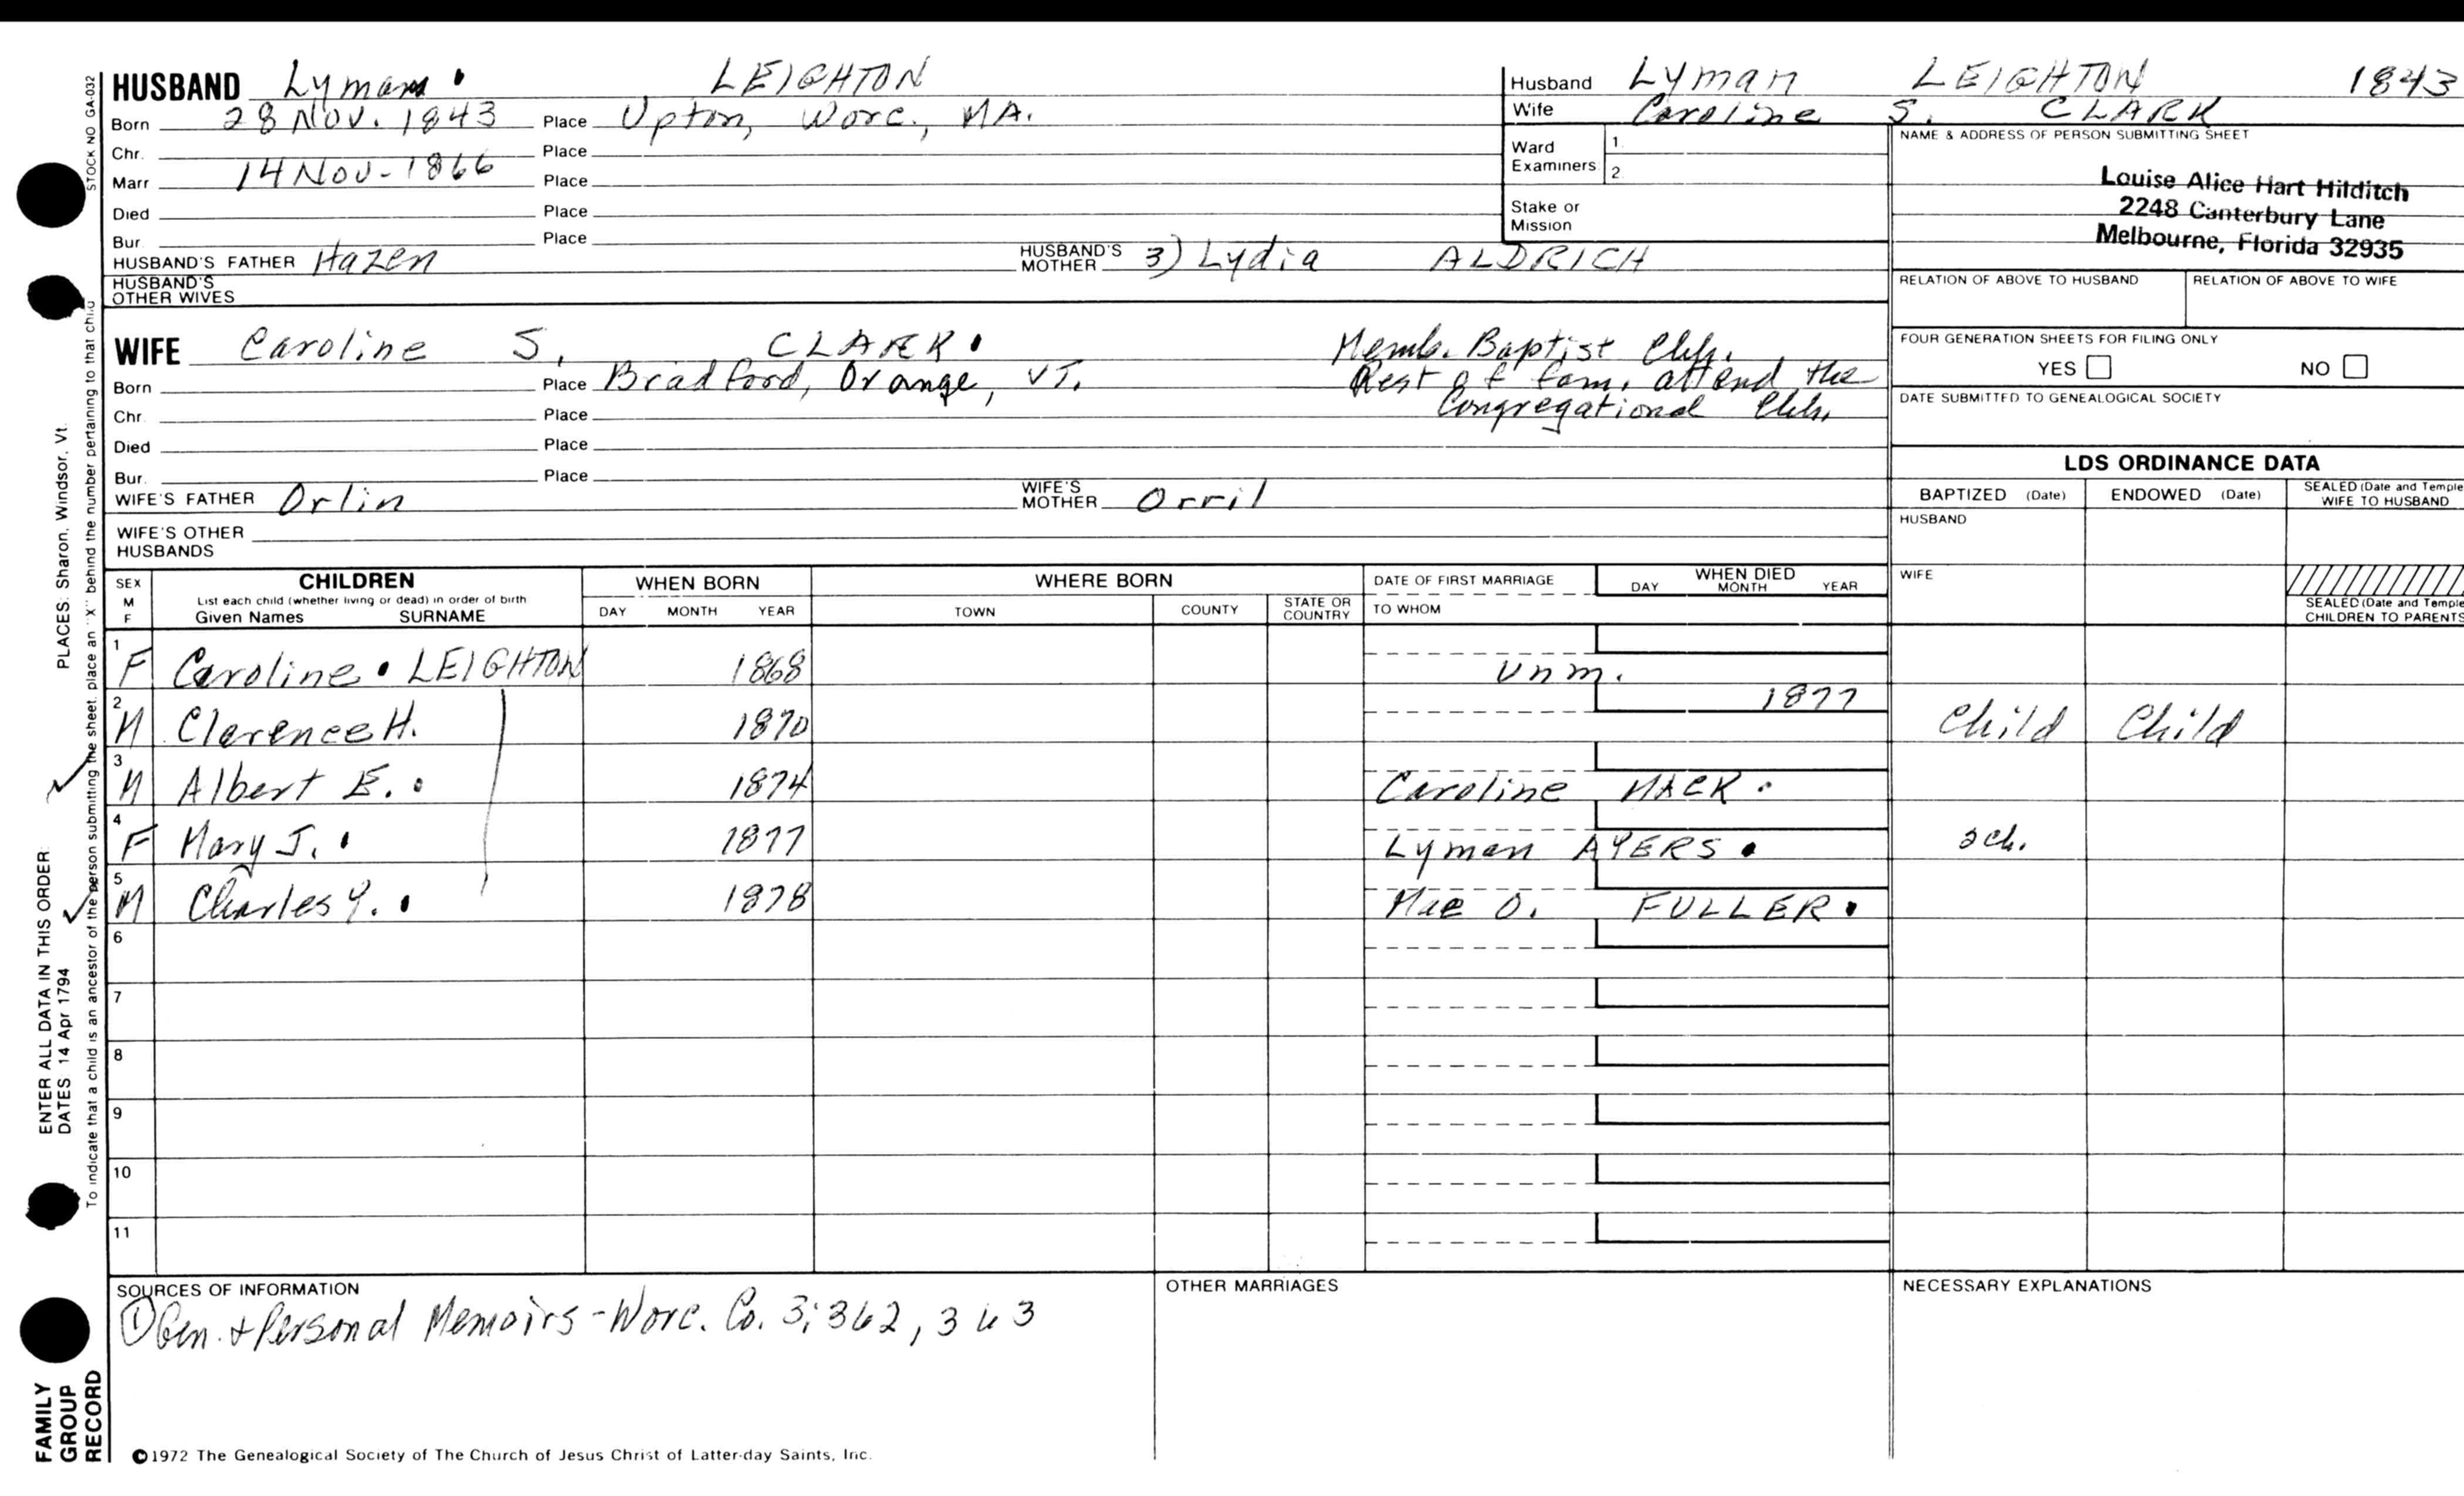 HUSBAND Lyman LEIGHTON
Born 28 Nov. 1843 Place Upton, Worc., MA.
Chr. Place
Marr 14 Nov-1866 Place
Died Place
Bur. Place
HUSBAND'S FATHER Hazen HUSBAND'S MOTHER 3) Lydia ALDRICH
HUSBAND'S OTHER WIVES
Husband Lyman LEIGHTON 1843
Wife Caroline S. CLARK
Ward Examiners 1. 2.
Stake or Mission
NAME & ADDRESS OF PERSON SUBMITTING SHEET
Louise Alice Hart Hilditch
2248 Canterbury Lane
Melbourne, Florida 32935
RELATION OF ABOVE TO HUSBAND RELATION OF ABOVE TO WIFE
FOUR GENERATION SHEETS FOR FILING ONLY
YES NO
DATE SUBMITTED TO GENEALOGICAL SOCIETY
WIFE Caroline S. CLARK
Born Place Bradford, Orange, VT.
Chr. Place
Died Place
Bur. Place
WIFE'S FATHER Orlin WIFE'S MOTHER Orril
WIFE'S OTHER HUSBANDS
Memb. Baptist Chh.
Rest of fam. attend the
Congregational Chh.
LDS ORDINANCE DATA
BAPTIZED (Date) ENDOWED (Date) SEALED (Date and Temple) WIFE TO HUSBAND
HUSBAND
WIFE
SEALED (Date and Temple) CHILDREN TO PARENTS
SEX M F
CHILDREN
List each child (whether living or dead) in order of birth
Given Names SURNAME
WHEN BORN
DAY MONTH YEAR
WHERE BORN
TOWN COUNTY STATE OR COUNTRY
DATE OF FIRST MARRIAGE
TO WHOM
WHEN DIED
DAY MONTH YEAR
1 F Caroline LEIGHTON 1868 Unm.
2 M Clarence H. 1870 1877 Child Child
3 M Albert E. 1874 Caroline MACK
4 F Mary J. 1877 Lyman AYERS sch.
5 M Charles Y. 1878 Mae O. FULLER
6
7
8
9
10
11
SOURCES OF INFORMATION
① Gen. & Personal Memoirs - Worc. Co. 3:362, 363
OTHER MARRIAGES
NECESSARY EXPLANATIONS
©1972 The Genealogical Society of The Church of Jesus Christ of Latter-day Saints, Inc.
STOCK NO GA-032
To indicate that a child is an ancestor of the person submitting the sheet, place an "X" behind the number pertaining to that child
PLACES: Sharon, Windsor, Vt.
ENTER ALL DATA IN THIS ORDER:
DATES 14 Apr 1794
FAMILY
GROUP
RECORD